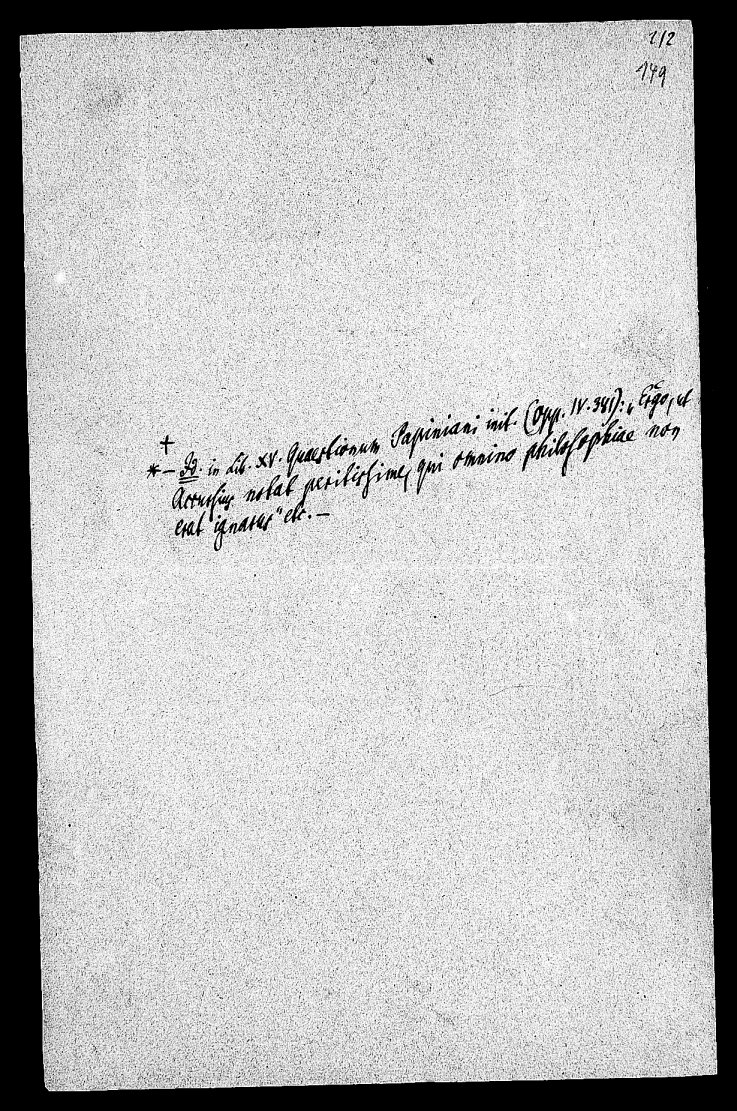 212
149
+
*– Id. in Lib. XV. Quaestionum Papiniani init. (Opp. IV. 381): „Ergo, ut
Accursius notat peritissime, qui omnino philosophiae non
erat ignarus" etc. –